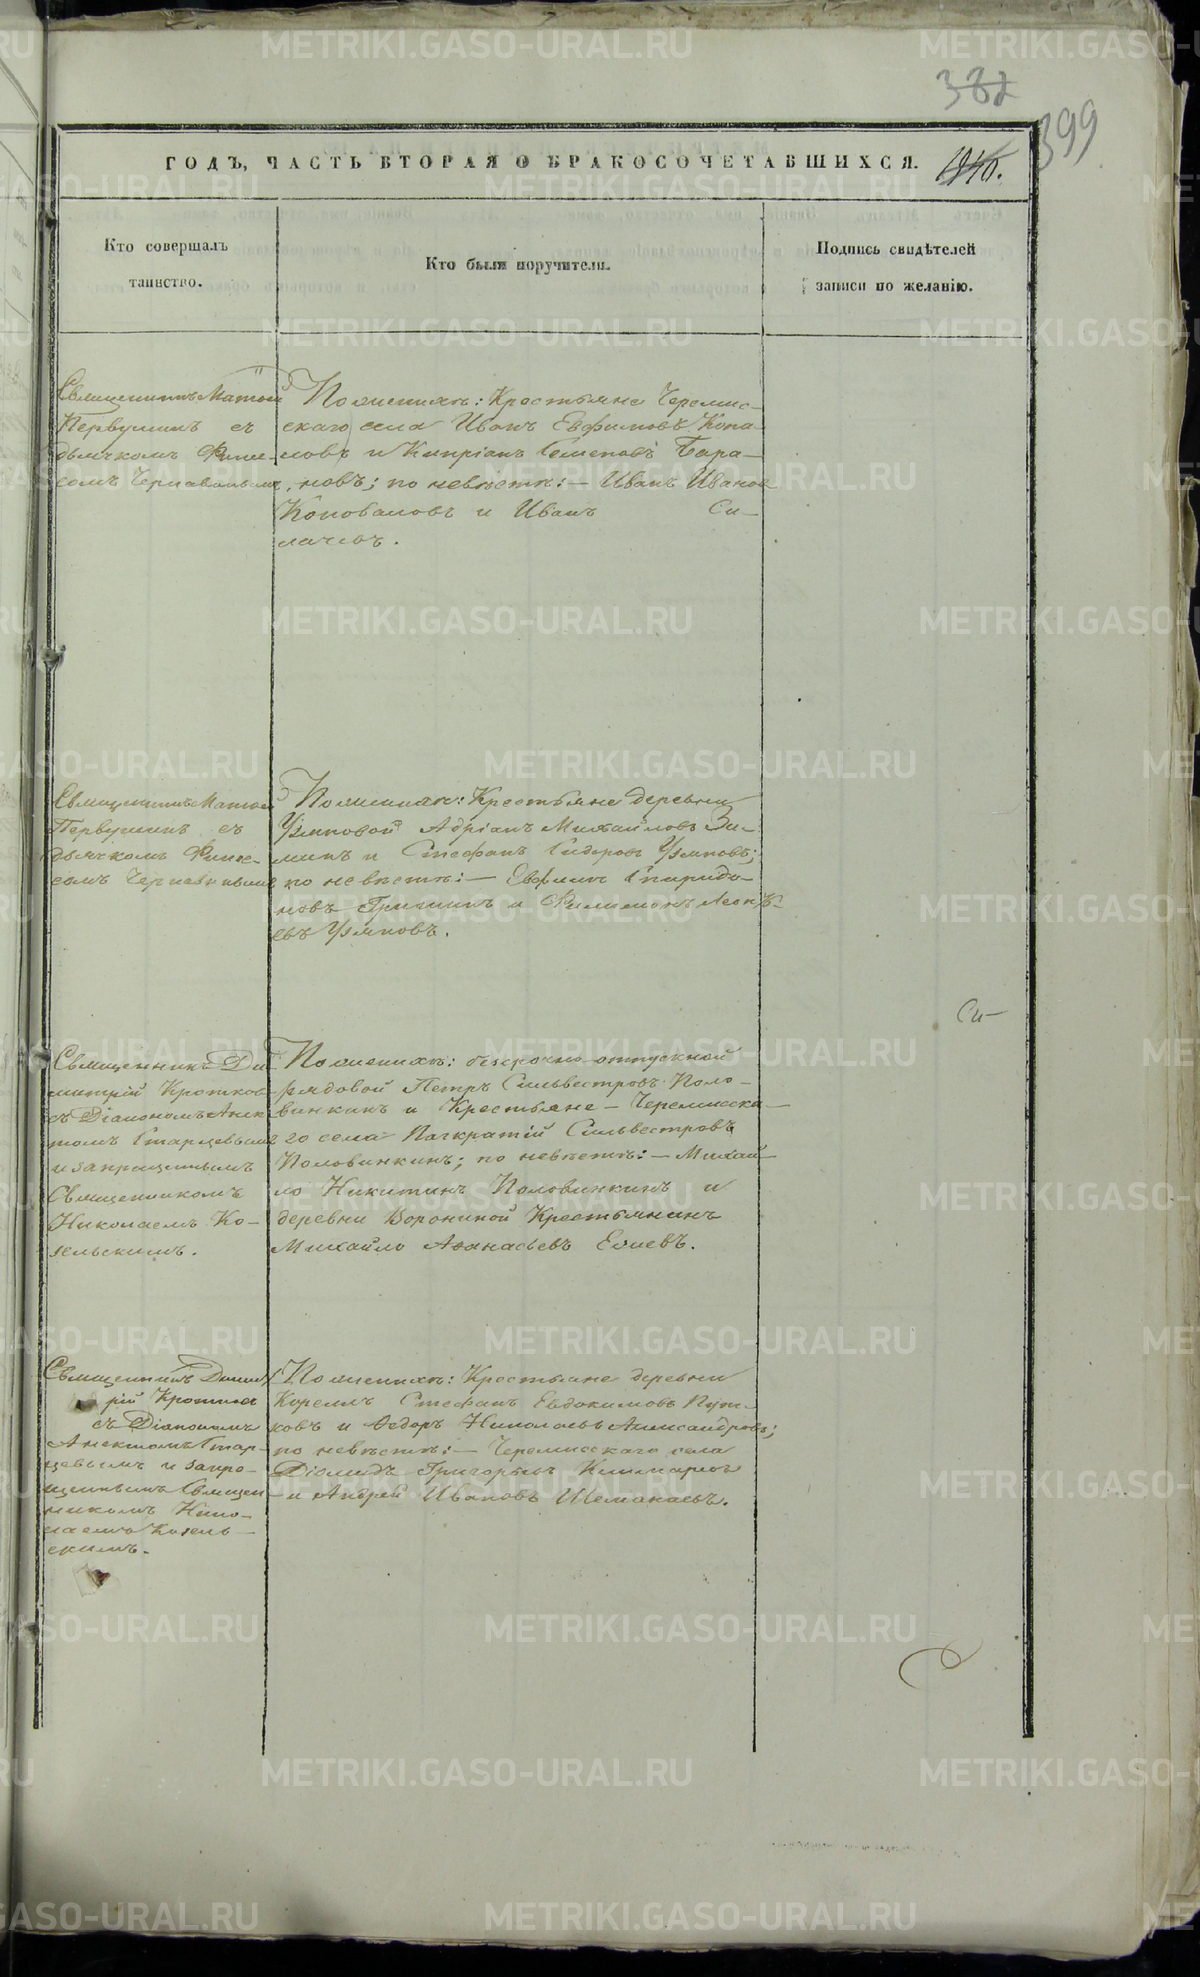 382
399
ГОДЪ, ЧАСТЬ ВТОРАЯ О БРАКОСОЧЕТАВШИХСЯ.
Кто совершалъ
таинство.
Кто были поручители.
Подпись свидѣтелей
записи по желанію.
Священникъ Матѳей
Первушинъ съ
дьячкомъ Фине-
сомъ Чернавинымъ
По женихѣ: Крестьяне Черемис-
скаго села Иванъ Евфимовъ Коно-
ловъ и Кипріанъ Семеновъ Бара-
новъ; по невѣстѣ: — Иванъ Иванов
Коноваловъ и Иванъ Си-
лачевъ.
Священникъ Матѳей
Первушинъ съ
дьячкомъ Фине-
сомъ Чернавинымъ
По женихѣ: Крестьяне деревни
Узяновой Адріанъ Михайловъ Зи-
минъ и Стефанъ Сидоровъ Узяновъ;
по невѣстѣ: — Евфимъ Спиридо
новъ Гришинъ и Филимонъ Леонть-
евъ Узяновъ.
Си-
Священникъ Ди
митрій Кротков
съ Діакономъ Анек
томъ Старцевымъ
и запрещеннымъ
Священникомъ
Николаемъ Ко-
зельскимъ.
По женихѣ: безсрочно-отпускной
рядовой Петръ Сильвестровъ Поло-
винкинъ и Крестьяне — Черемисска-
го села Панкратій Сильвестровъ
Половинкинъ; по невѣстѣ: — Михай-
ло Никитинъ Половинкинъ и
деревни Ворониной Крестьянинъ
Михайло Аѳанасьевъ Ежевъ.
Священникъ Димит
рій Кротков
съ Діакономъ
Анектомъ Стар-
цевымъ и запре-
щеннымъ Священ
никомъ Нико-
лаемъ Козель-
скимъ.
По женихѣ: Крестьяне деревни
Корелъ Стефанъ Евдокимовъ Пут-
ковъ и Ѳедоръ Николаевъ Александровъ;
по невѣстѣ: — Черемисскаго села
Діомидъ Григорьевъ
и Андрей Ивановъ Шемакаевъ.
METRIKI.GASO-URAL.RU